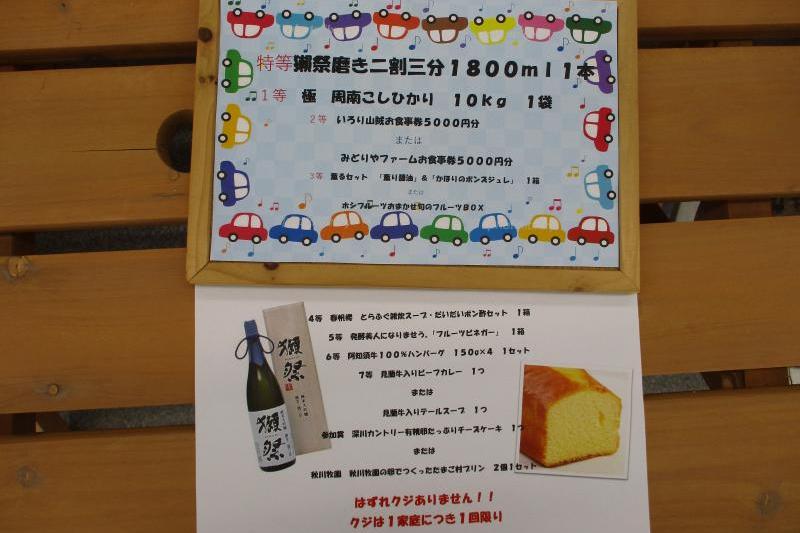 特等獺祭磨き二割三分1800ml1本
1等 極 周南こしひかり 10kg 1袋
2等 いろり山賊お食事券5000円分
または
みどりやファームお食事券5000円分
3等 薫るセット 「薫り醤油」&「かほりのポンズジュレ」 1箱
または
ホシフルーツおまかせ旬のフルーツBOX
4等 春帆楼 とらふぐ雑炊スープ・だいだいポン酢セット 1箱
5等 発酵美人になりませう。「フルーツビネガー」 1箱
6等 阿知須牛100%ハンバーグ 150g×4 1セット
7等 見蘭牛入りビーフカレー 1つ
または
見蘭牛入りテールスープ 1つ
参加賞 深川カントリー有精卵たっぷりチーズケーキ 1つ
または
秋川牧園 秋川牧園の卵でつくったたまご村プリン 2個1セット
はずれクジありません!!
クジは1家庭につき1回限り
獺祭
獺祭